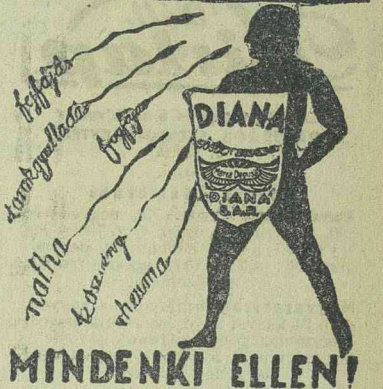 fejfájás
torokgyulladás
fogfájás
nátha
köszvény
rheuma
DIANA
sósborszesz
Marca Depusă
DIANA
S.A.R.
MINDENKI ELLEN!